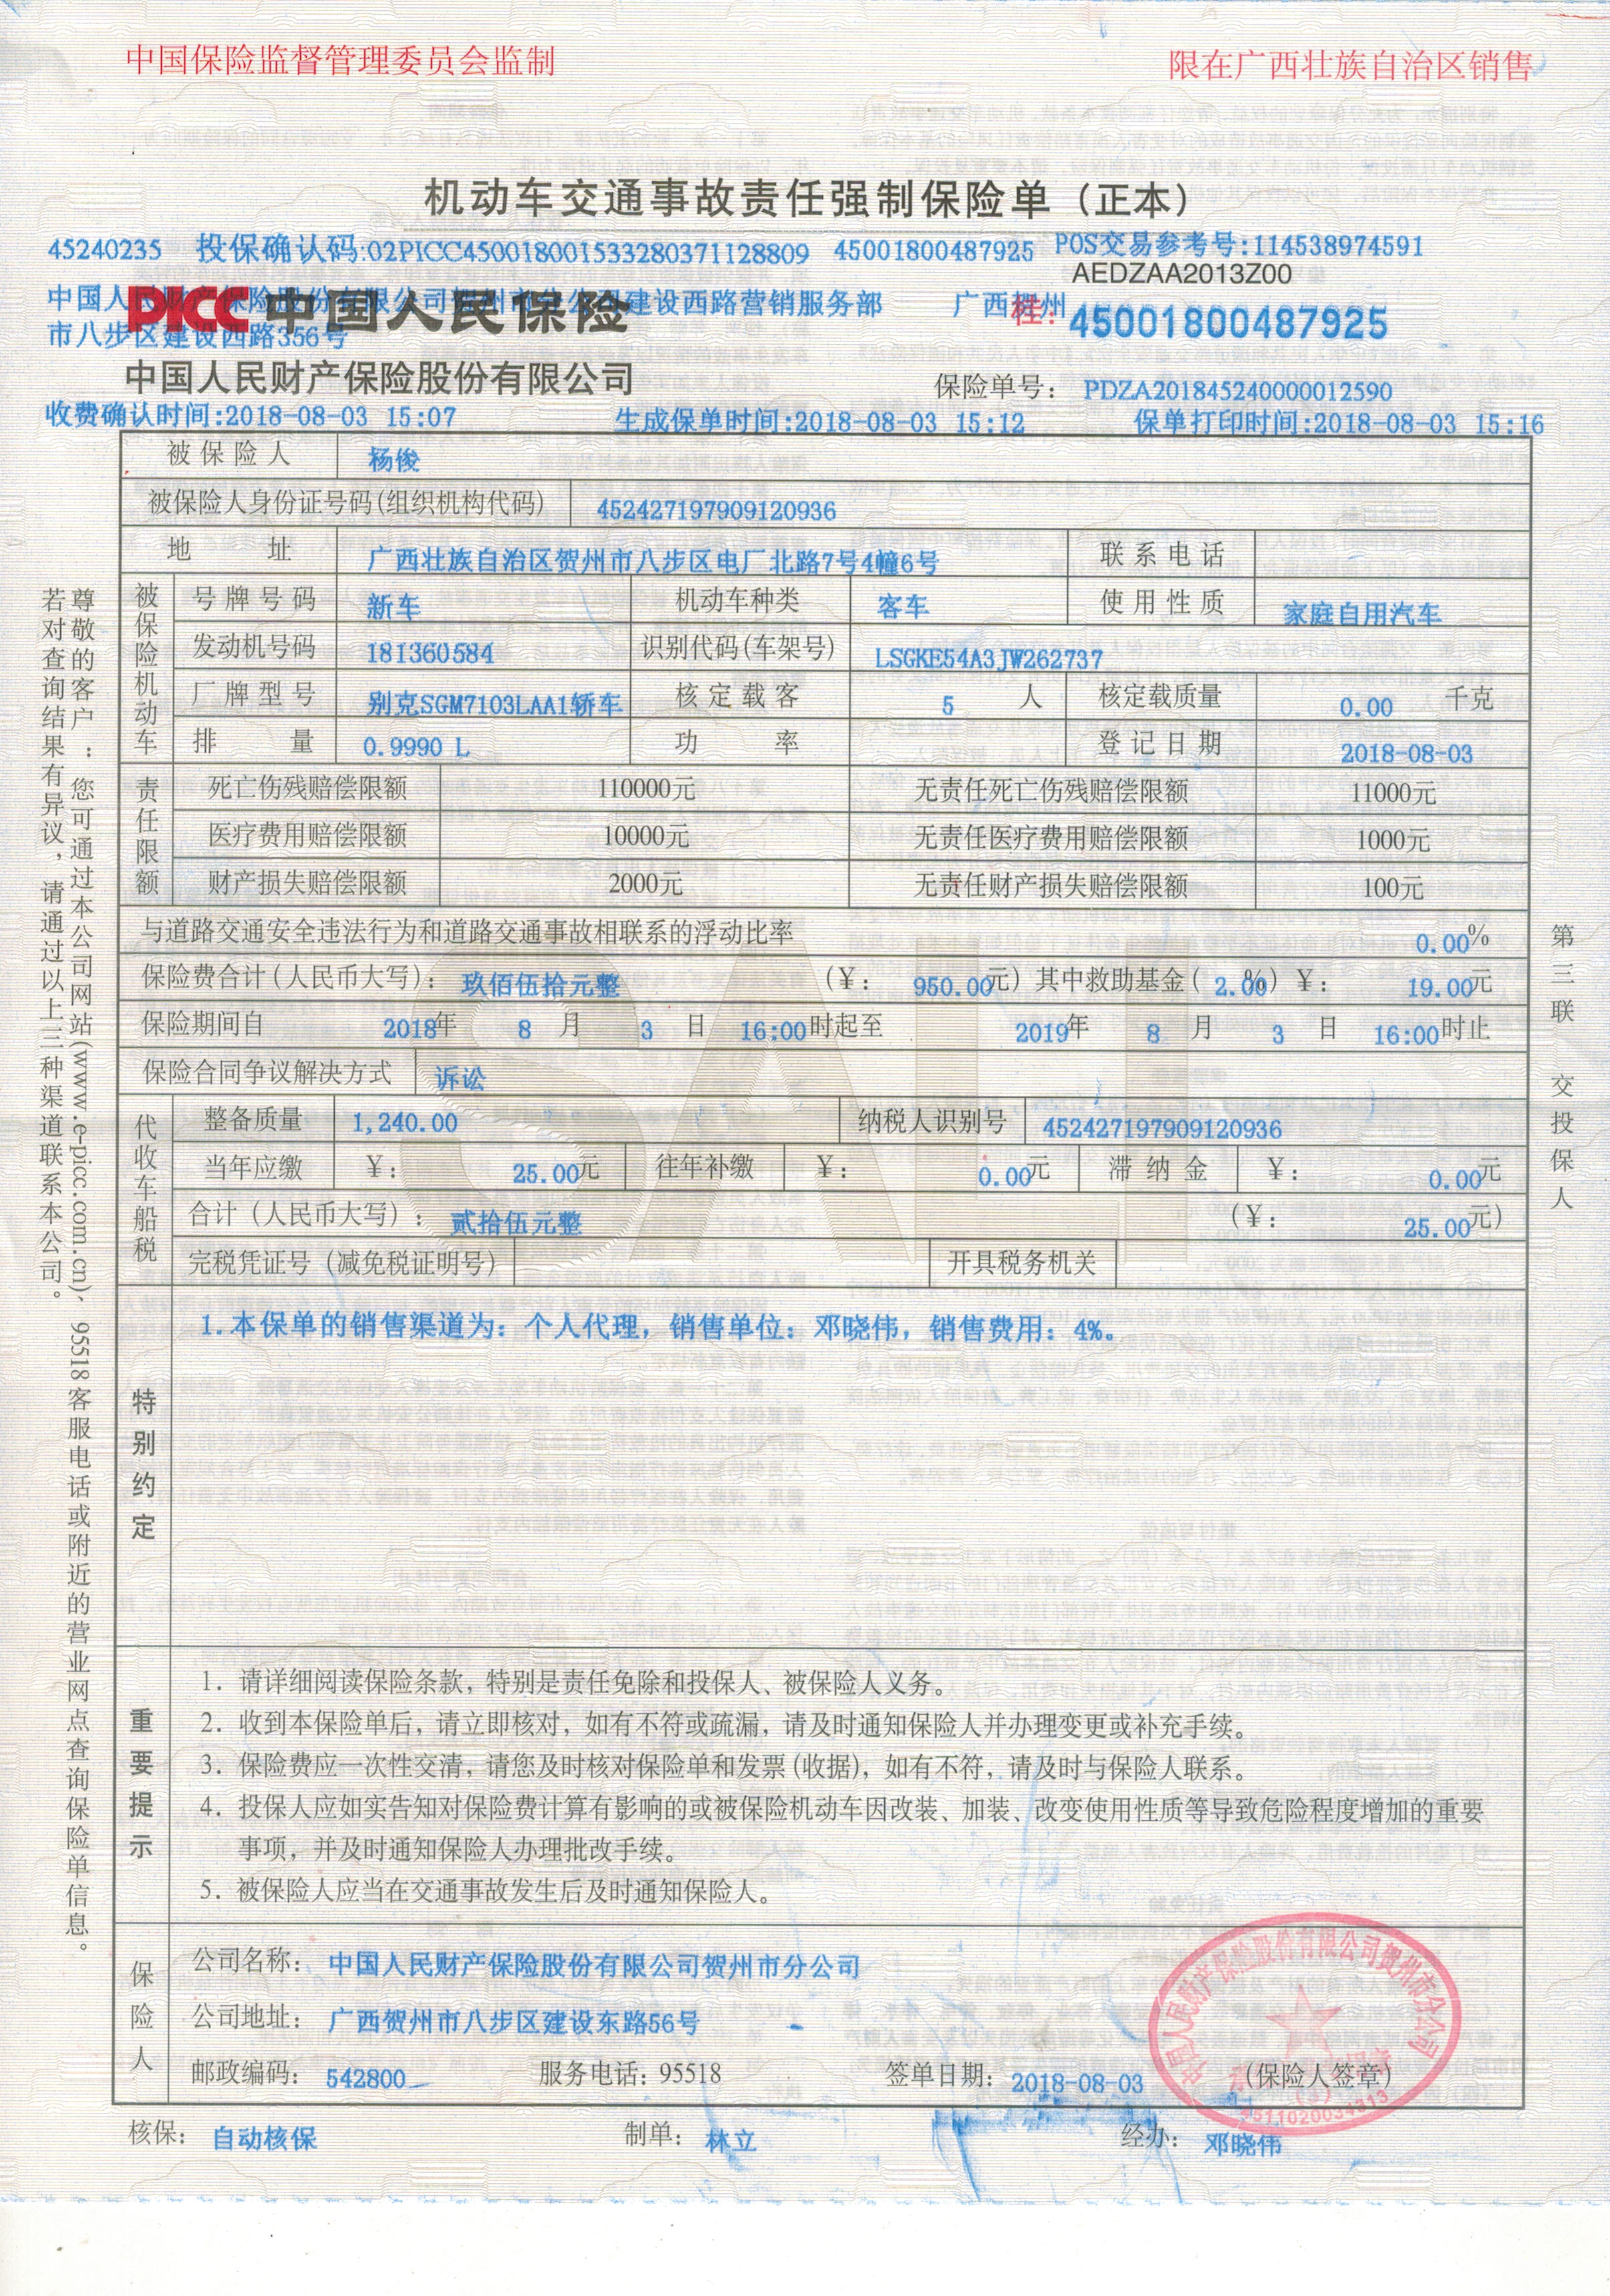 中国保险监督管理委员会监制
限在广西壮族自治区销售
机动车交通事故责任强制保险单（正本）
45240235 投保确认码:02PICC450018001533280371128809 45001800487925 POS交易参考号:114538974591
AEDZAA2013Z00
中国人民财产保险股份有限公司贺州市分公司建设西路营销服务部 广西贺州
市八步区建设西路356号
PICC 中国人民保险 桂: 45001800487925
中国人民财产保险股份有限公司 保险单号: PDZA201845240000012590
收费确认时间:2018-08-03 15:07 生成保单时间:2018-08-03 15:12 保单打印时间:2018-08-03 15:16
被保险人 杨俊
被保险人身份证号码(组织机构代码) 452427197909120936
地 址 广西壮族自治区贺州市八步区电厂北路7号4幢6号 联系电话
被保险机动车
号牌号码 新车 机动车种类 客车 使用性质 家庭自用汽车
发动机号码 181360584 识别代码(车架号) LSGKE54A3JW262737
厂牌型号 别克SGM7103LAA1轿车 核定载客 5 人 核定载质量 0.00 千克
排 量 0.9990 L 功 率 登记日期 2018-08-03
责任限额
死亡伤残赔偿限额 110000元 无责任死亡伤残赔偿限额 11000元
医疗费用赔偿限额 10000元 无责任医疗费用赔偿限额 1000元
财产损失赔偿限额 2000元 无责任财产损失赔偿限额 100元
与道路交通安全违法行为和道路交通事故相联系的浮动比率 0.00%
保险费合计(人民币大写): 玖佰伍拾元整 (¥: 950.00元) 其中救助基金( 2.00%) ¥: 19.00元
保险期间自 2018年 8 月 3 日 16:00时起至 2019年 8 月 3 日 16:00时止
保险合同争议解决方式 诉讼
代收车船税
整备质量 1,240.00 纳税人识别号 452427197909120936
当年应缴 ¥: 25.00元 往年补缴 ¥: 0.00元 滞纳金 ¥: 0.00元
合计(人民币大写): 贰拾伍元整 (¥: 25.00元)
完税凭证号(减免税证明号) 开具税务机关
特别约定
1.本保单的销售渠道为：个人代理，销售单位：邓晓伟，销售费用：4%。
重要提示
1. 请详细阅读保险条款，特别是责任免除和投保人、被保险人义务。
2. 收到本保险单后，请立即核对，如有不符或疏漏，请及时通知保险人并办理变更或补充手续。
3. 保险费应一次性交清，请您及时核对保险单和发票(收据)，如有不符，请及时与保险人联系。
4. 投保人应如实告知对保险费计算有影响的或被保险机动车因改装、加装、改变使用性质等导致危险程度增加的重要
事项，并及时通知保险人办理批改手续。
5. 被保险人应当在交通事故发生后及时通知保险人。
保险人
公司名称: 中国人民财产保险股份有限公司贺州市分公司
公司地址: 广西贺州市八步区建设东路56号
邮政编码: 542800 服务电话: 95518 签单日期: 2018-08-03 (保险人签章)
中国人民财产保险股份有限公司贺州市分公司
4511020034313
核保: 自动核保 制单: 林立 经办: 邓晓伟
尊敬的客户：您可通过本公司网站(www.e-picc.com.cn)、95518客服电话或附近的营业网点查询保险单信息。
若对查询结果有异议，请通过以上三种渠道联系本公司。
第三联 交投保人